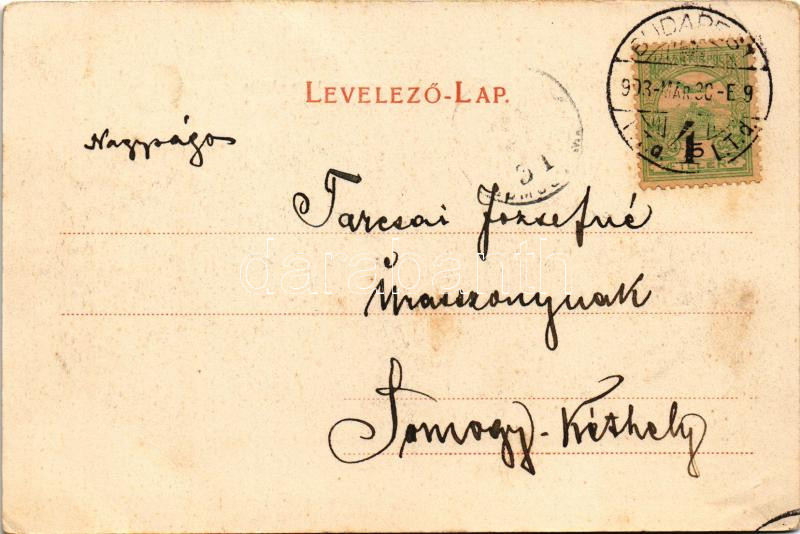 LEVELEZŐ-LAP.
BUDAPEST
903-MÁR.30-E 9
5
31
Nagyságos
Tarcsai Józsefné
Úrasszonynak
Somogy-Kéthely
darabanth